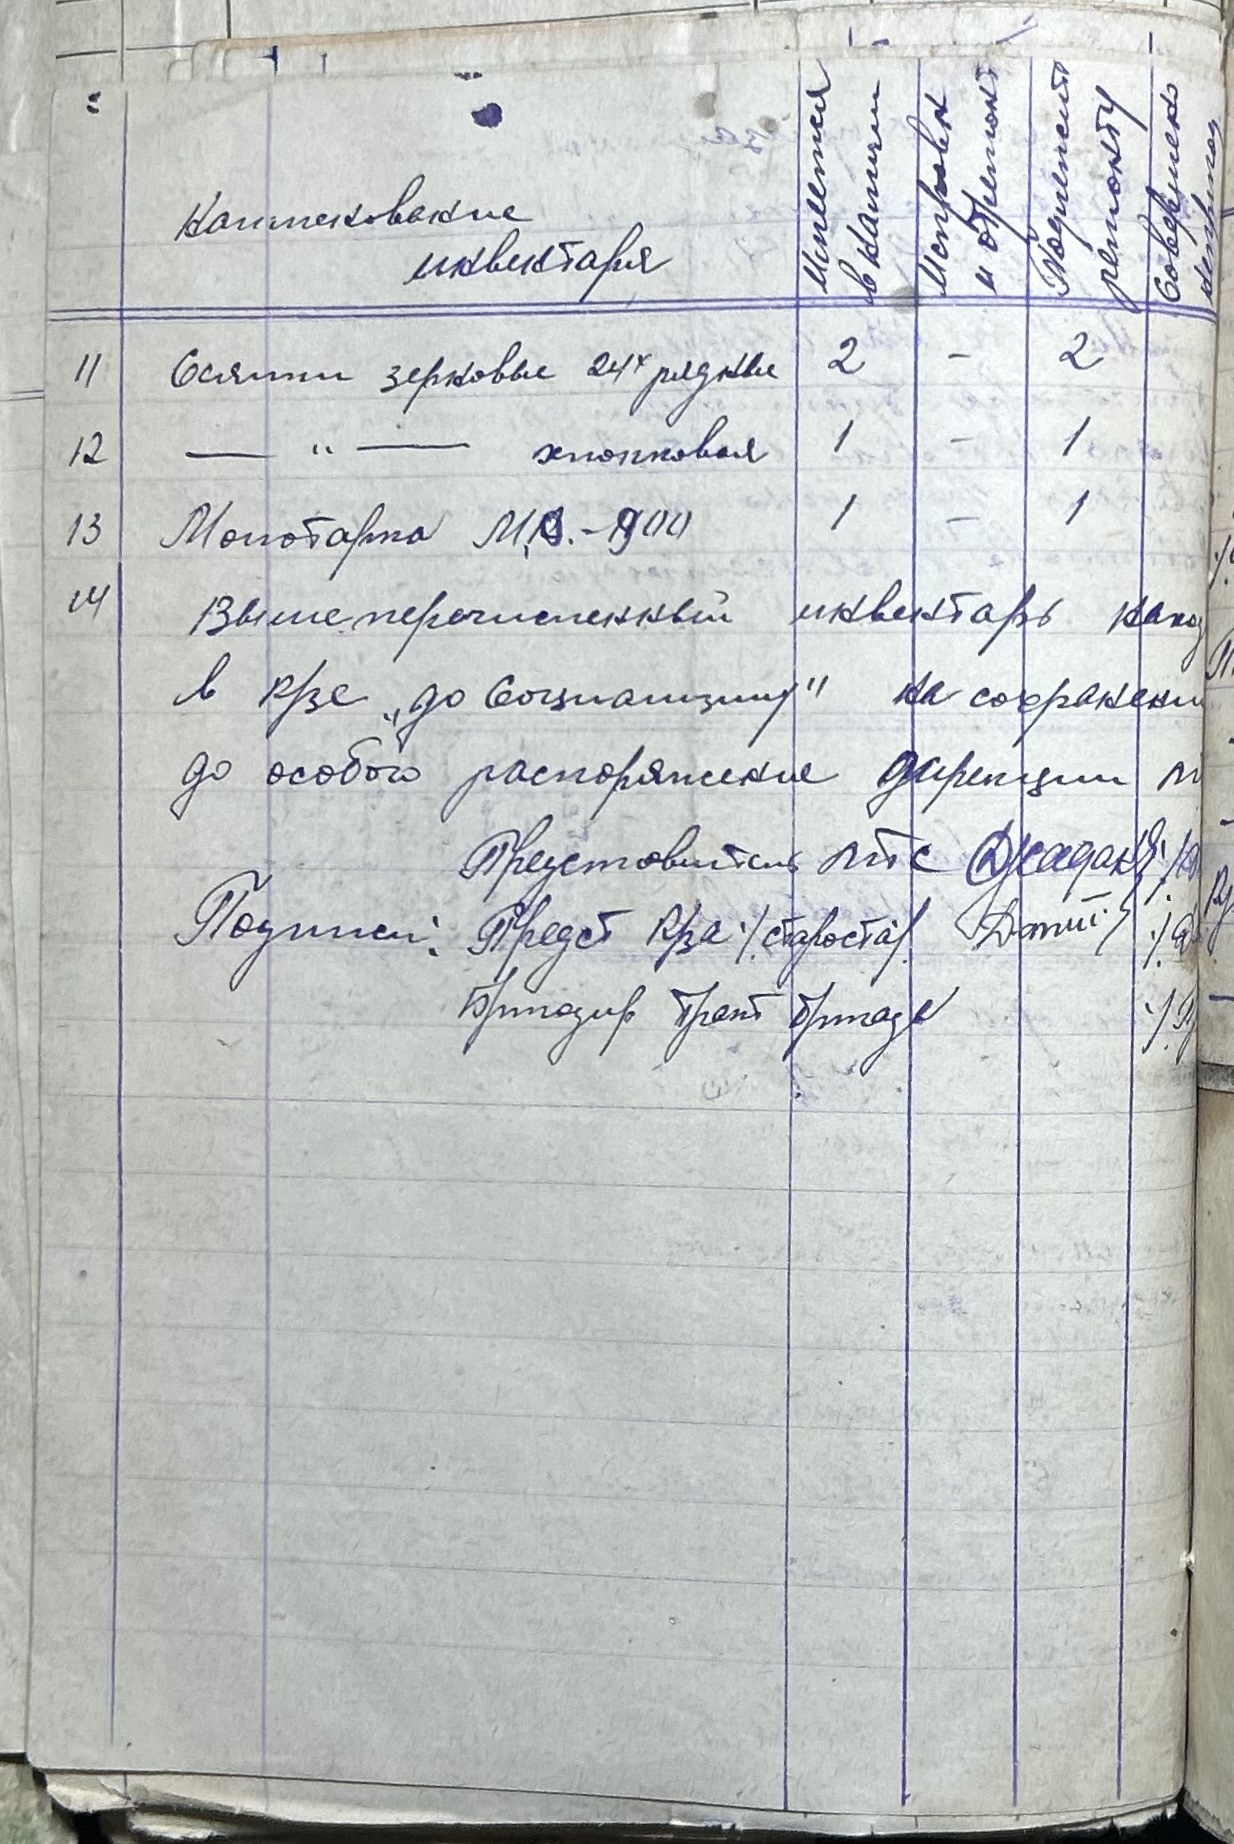 Наименование
инвентаря
Имеется
в наличии
Исправн
и отремонт
Подлежит
ремонту
Совершенно
11 Сеялки зерновые 24х рядные 2 – 2
12 — " — хлопковая 1 – 1
13 Молотарка 1 – 1
14 Вышеперечисленный инвентарь наход
в к/зе „до Социализму" на сохранени
до особого распоряжение дирекции м
Представитель мтс
Подписи: Предст к/за /староста/
Бригадир Тракт бригады